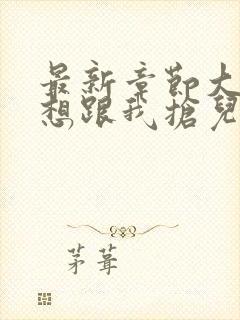 最新章節大
想跟我搶兒
茅葺